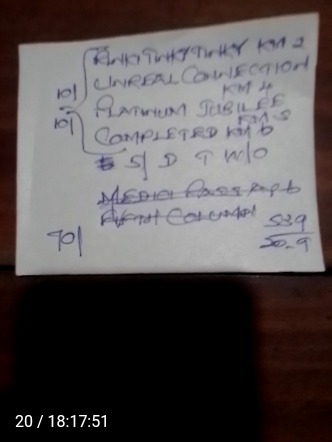 RINKITINKITINKY KM 2
10/ UNREAL CONNECTION
KM 4
10/ PLATINUM JUBILEE
KM 5
COMPLETED KM 6
S/ D T W/O
MEDIA PASS
FIFTH COLUMN
70/ 539
50-9
20 / 18:17:51